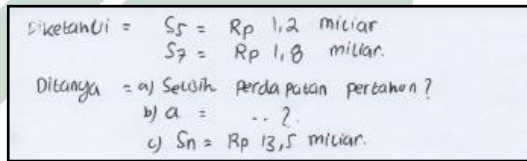 Diketahui = S5 = Rp 1,2 miliar
S7 = Rp 1,8 miliar.
Ditanya = a) Selisih perdapatan pertahun?
b) a = ..?
c) Sn = Rp 13,5 miliar.